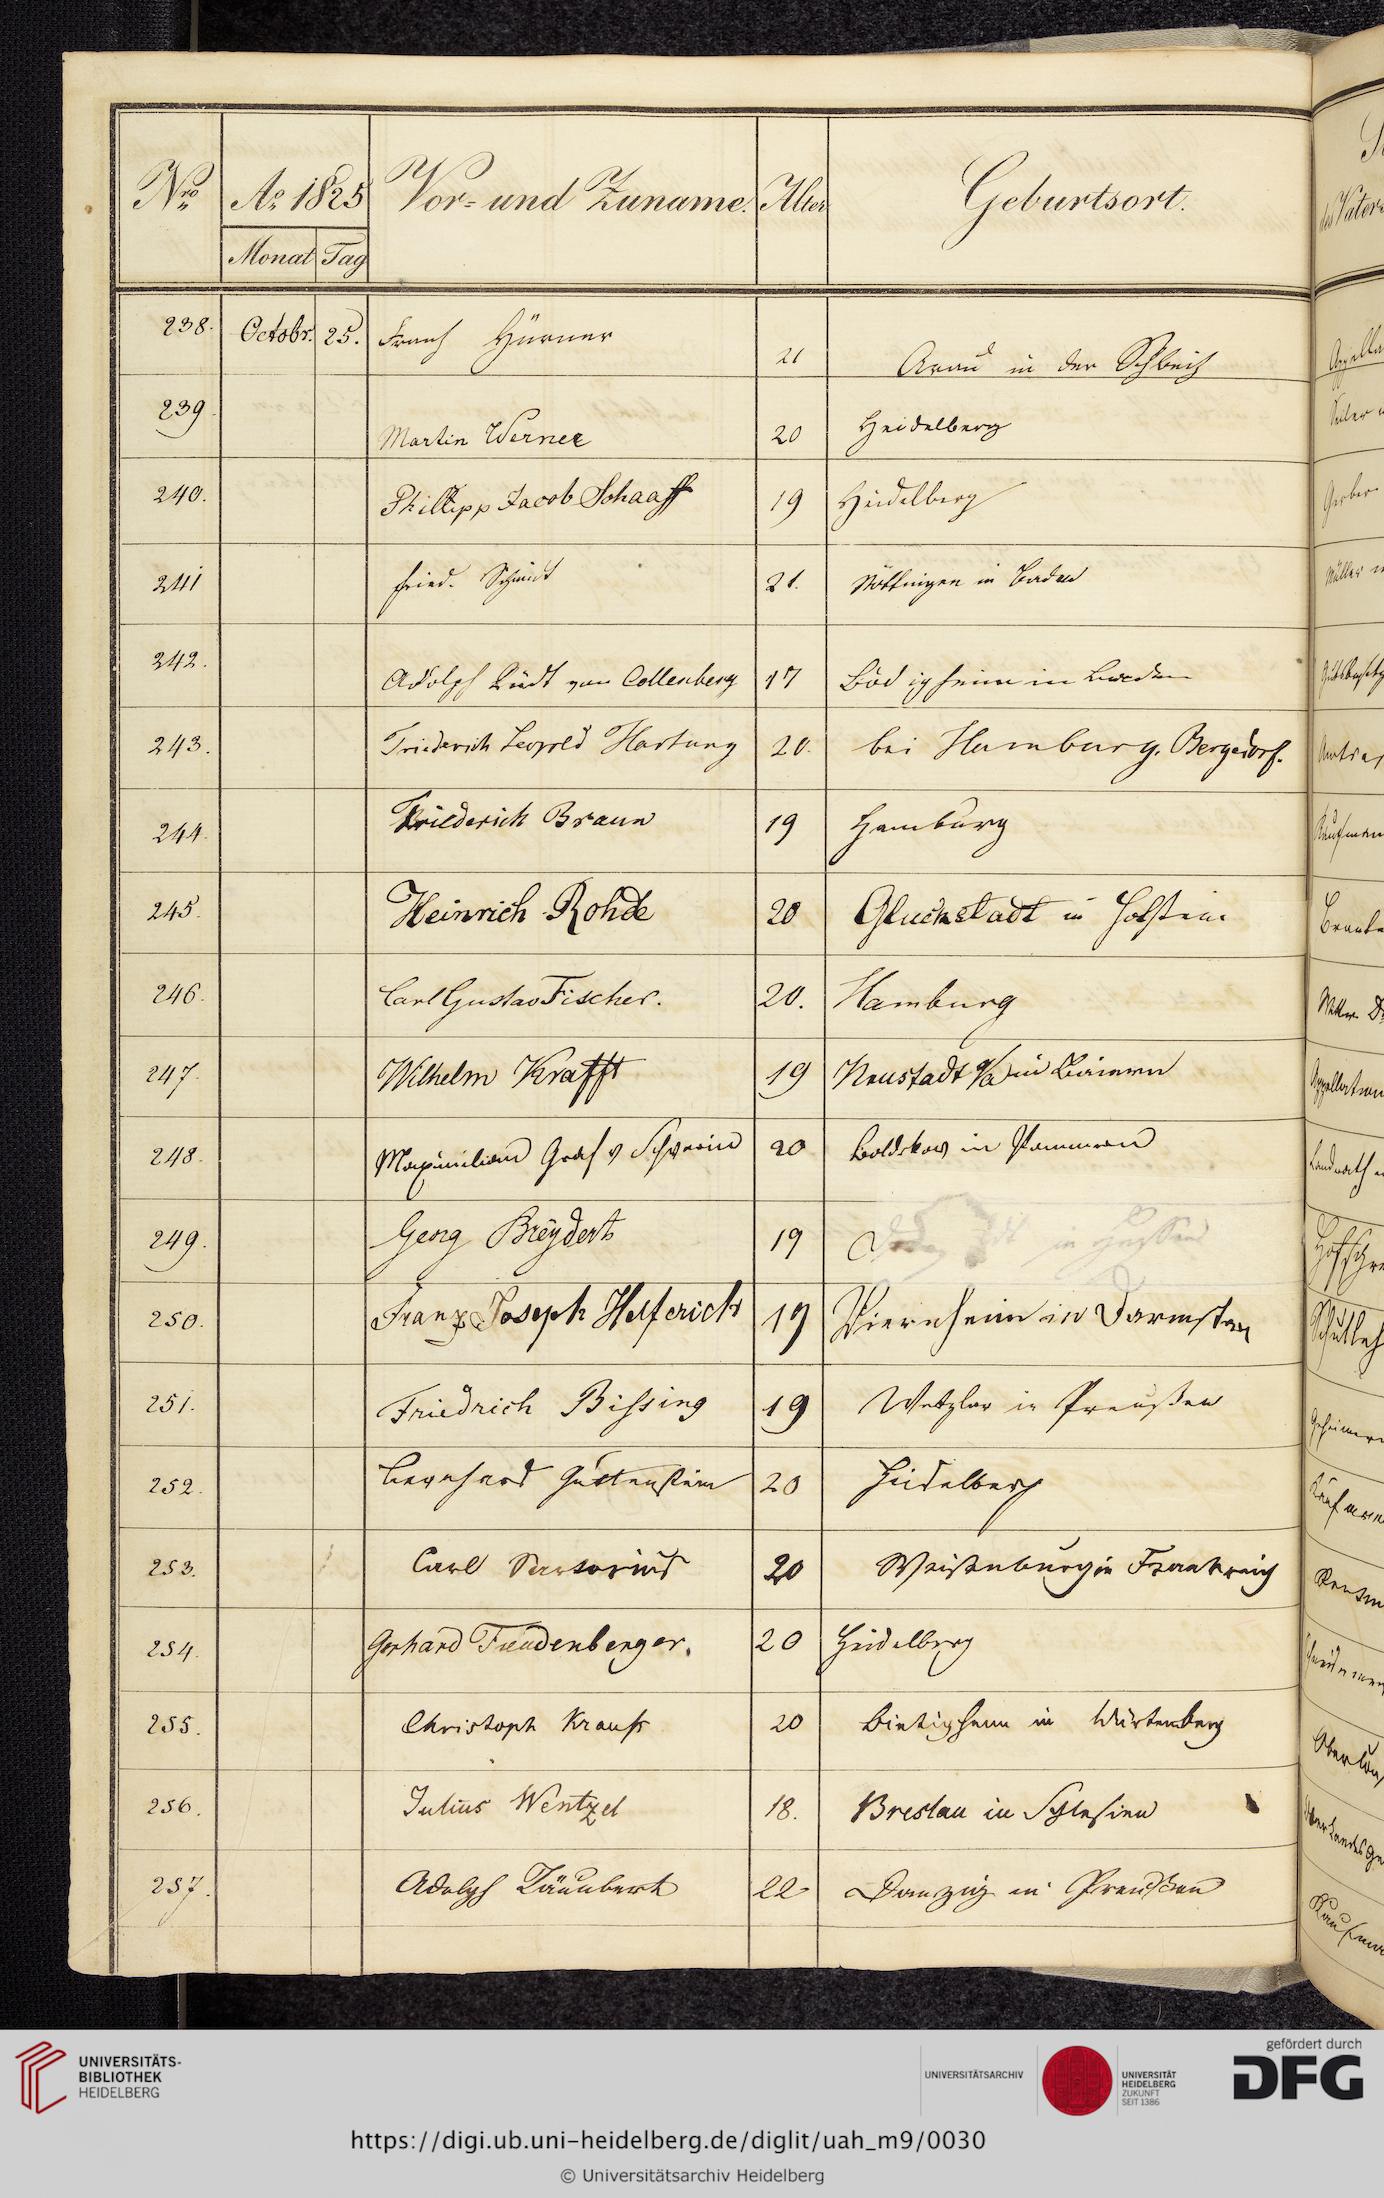 Nro. Ao. 1825 Vor- und Zuname. Alter Geburtsort.
Monat Tag
238. Octobr. 25. Franz Hürner 21 Arau in der Schweiz
239. Martin Werner 20 Heidelberg
240. Phillipp Jacob Schaaff 19 Heidelberg
241 Fried. Schmidt 21. Nöttingen in Baden
242. Adolph Rüdt von Collenberg 17 Bödigheim in Baden
243. Friederich Leopold Hartung 20. bei Hamburg, Bergedorf.
244. Friederich Braun 19 Hamburg
245. Heinrich Rohde 20 Gluckstadt in Holstein
246. Carl Gustav Fischer. 20. Hamburg
247. Wilhelm Krafft 19 Neustadt a/a in Baiern
248. Maximilian Graf v Schwerin 20 Boldekow in Pommern
249. Georg Breÿdert 19 in Hessen
250. Franz Joseph Helferich 19 Viernheim in Darmstat
251. Friedrich Bissing 19 Wetzlar in Preußen
252. Bernhard Guttenstein 20 Heidelberg
253. Carl Sartorius 20 Weissenburg in Frankreich
254. Gerhard Freudenberger. 20 Heidelberg
255. Christoph Krauß 20 Bietigheim in Würtemberg
256. Julius Wentzel 18. Breslau in Schlesien
257. Adolph Täubert 22 Danzig in Preußen
UNIVERSITÄTS-
BIBLIOTHEK
HEIDELBERG
UNIVERSITÄTSARCHIV
UNIVERSITÄT
HEIDELBERG
ZUKUNFT
SEIT 1386
gefördert durch
DFG
https://digi.ub.uni-heidelberg.de/diglit/uah_m9/0030
© Universitätsarchiv Heidelberg